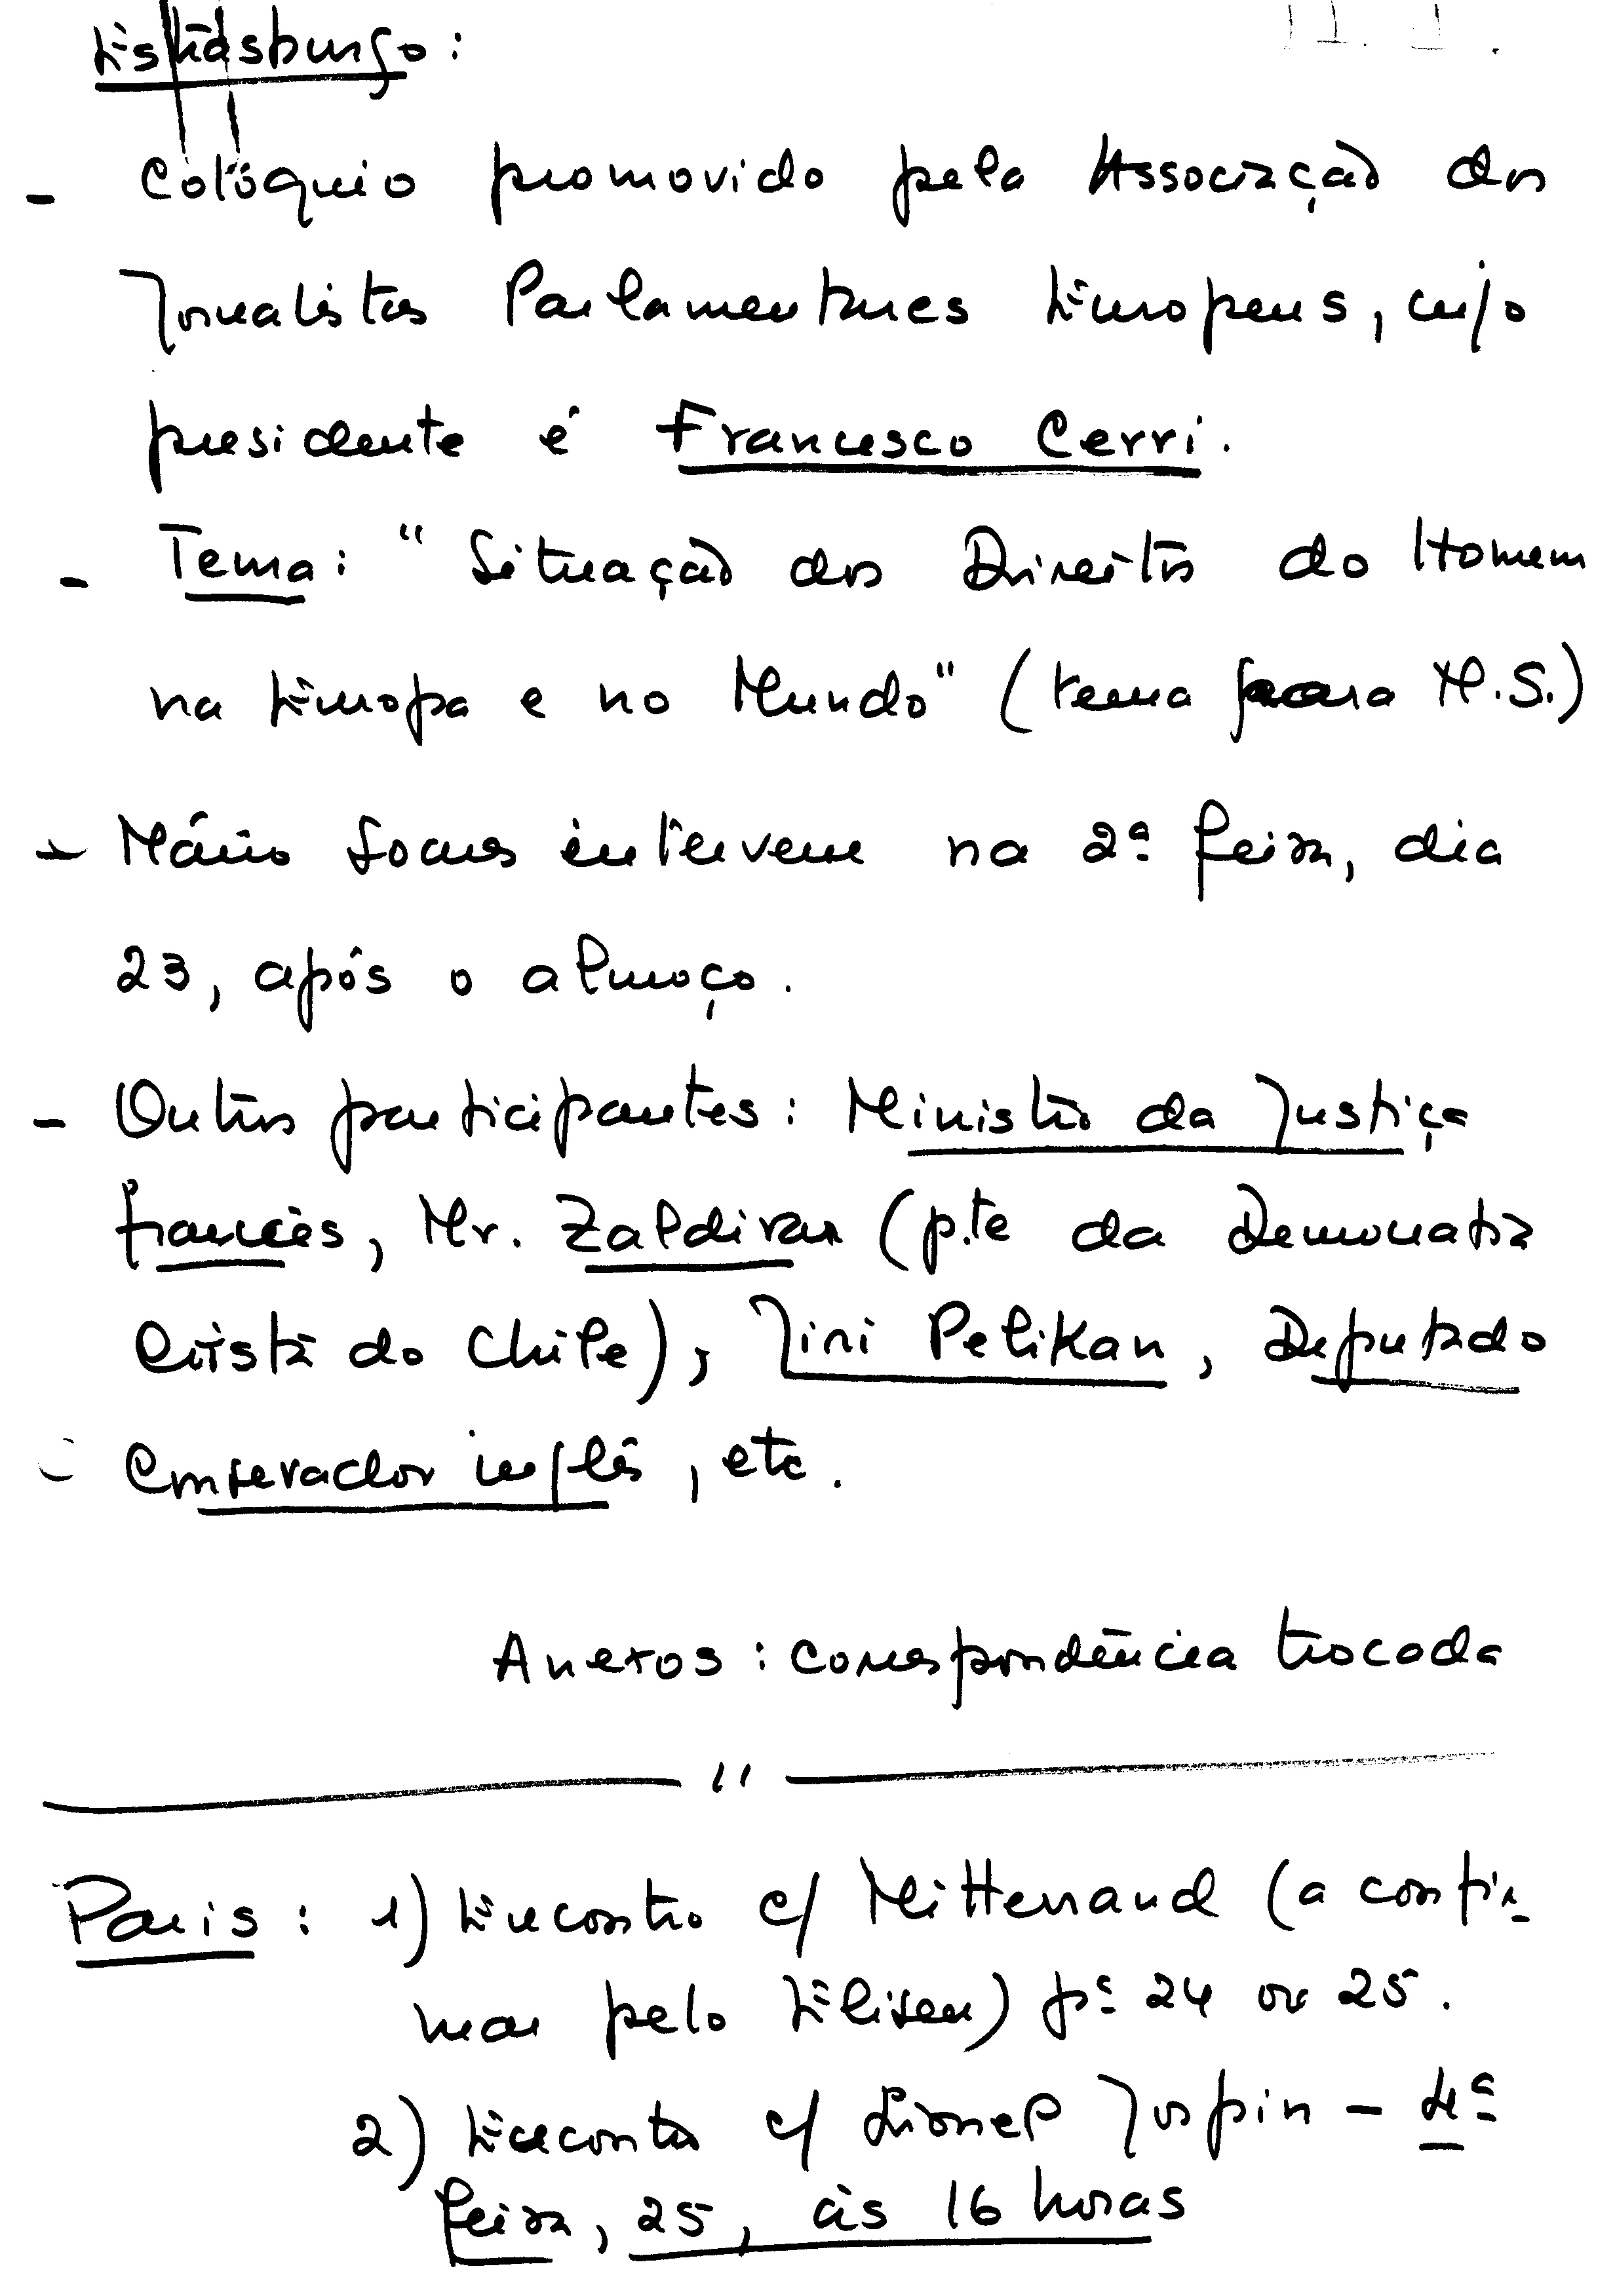 Estrasburgo:
- Colóquio promovido pela Associação dos
Jornalistas Parlamentares Europeus, cujo
presidente é Francesco Cerri.
- Tema: "Situação dos Direitos do Homem
na Europa e no Mundo" (tema para M.S.)
- Mário Soares intervem na 2ª feira, dia
23, após o almoço.
- Outros participantes: Ministro da Justiça
francês, Mr. Zaldivar (p.te da Democratia
Cristã do Chile), Jiri Pelikan, Deputado
Conservador inglês, etc.
Anexos: correspondência trocada
— " —
Paris: 1) Encontro c/ Mitterrand (a confir-
mar pelo Eliseu) pª 24 ou 25.
2) Encontro c/ Lionel Jospin - 4ª
feira, 25, às 16 horas